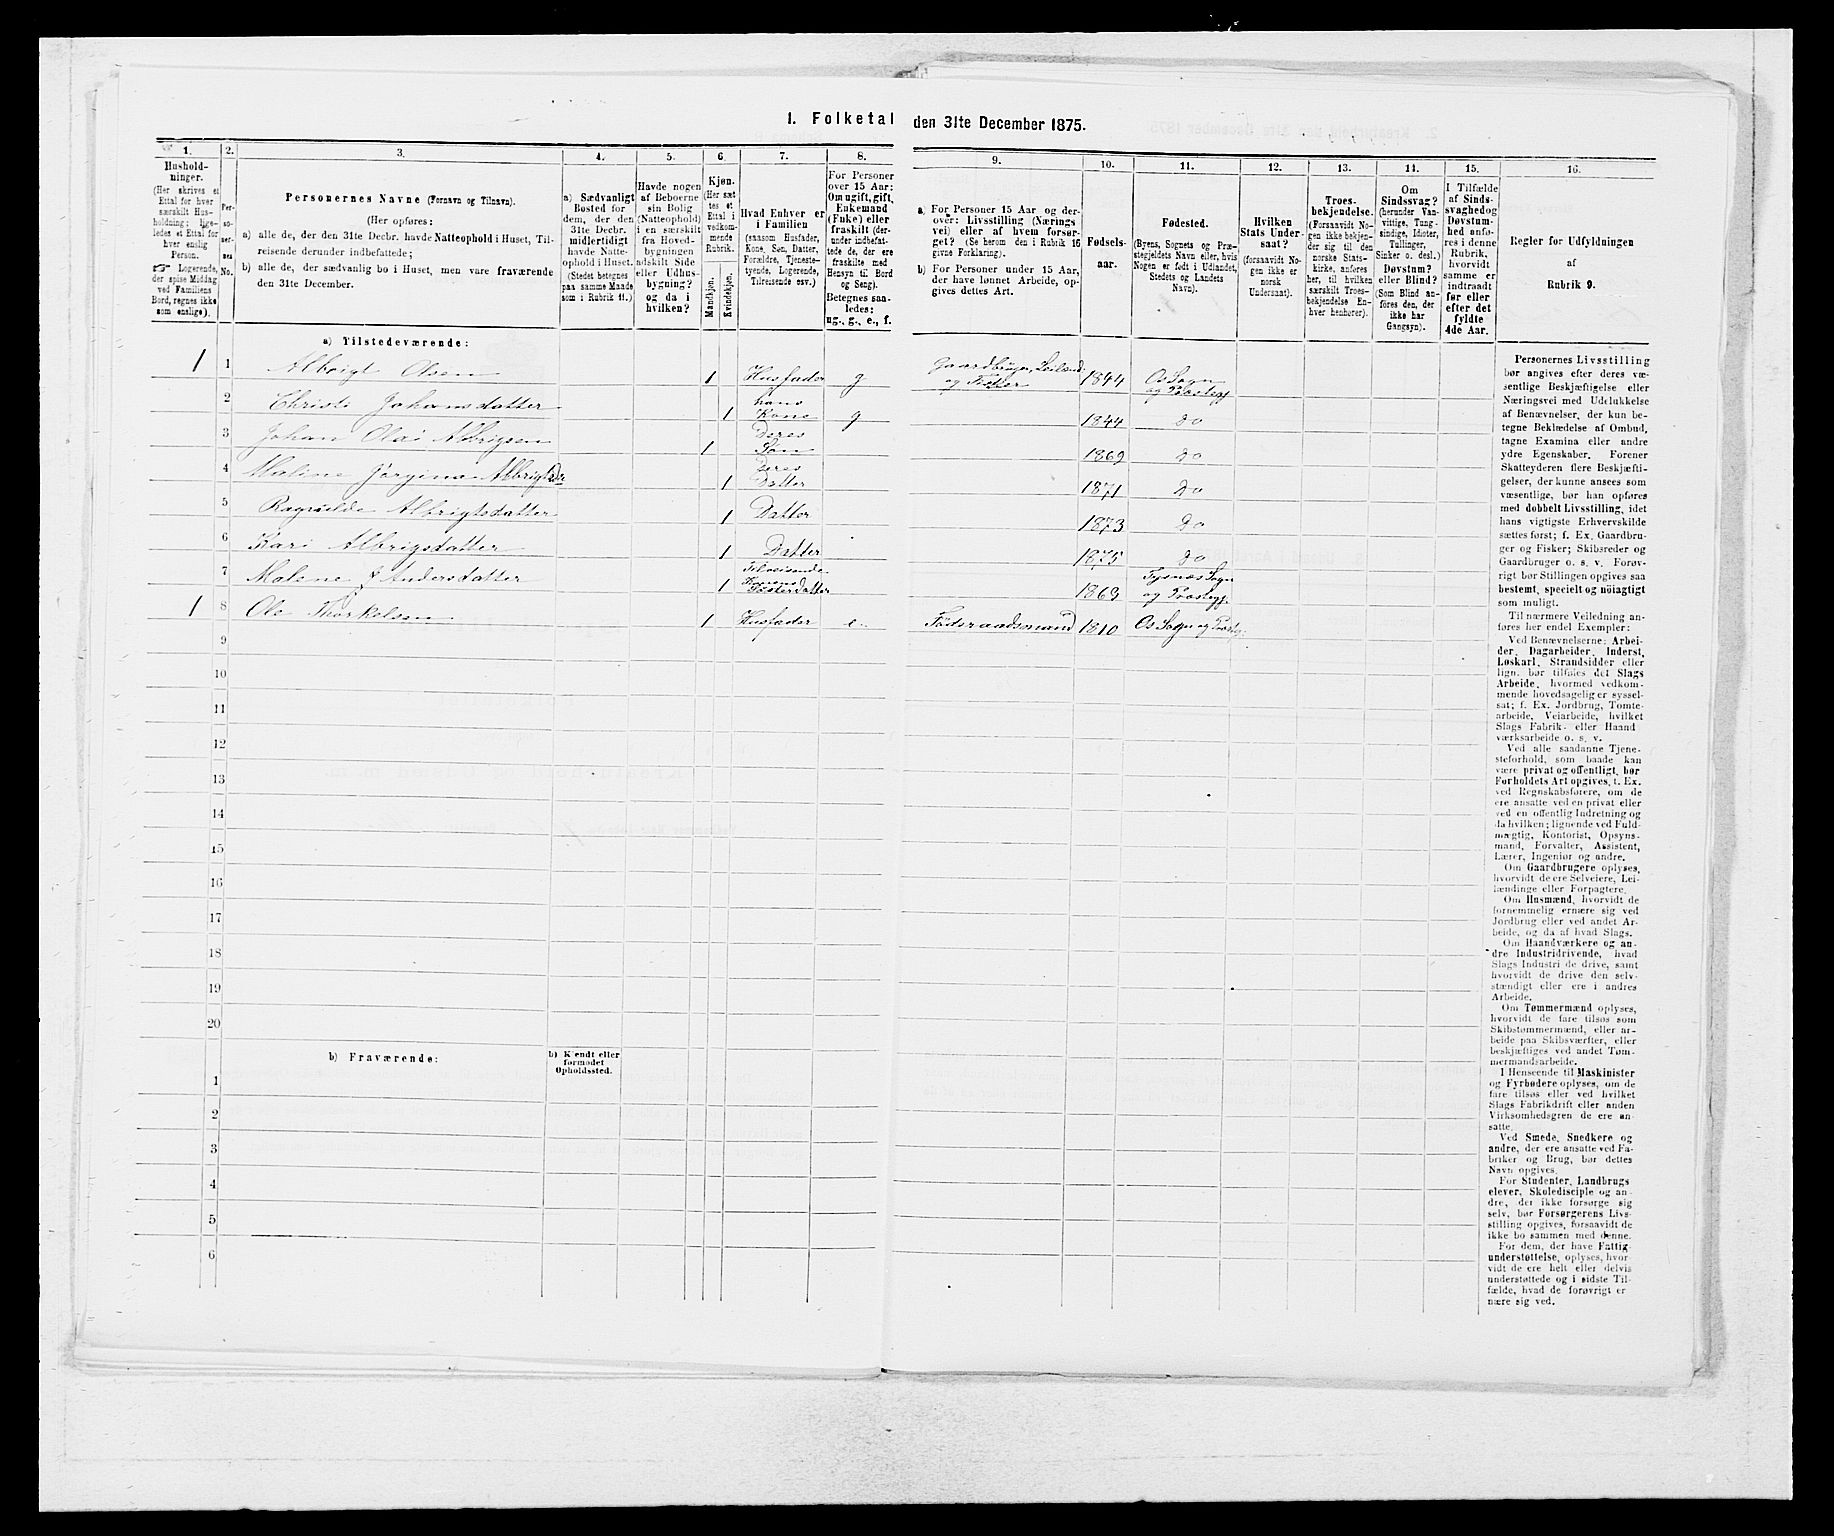 1. Folketal den 31te December 1875.
1. 2. 3. 4. 5. 6. 7. 8. 9. 10. 11. 12. 13. 14. 15. 16.
Hushold-
ninger.
(Her skrives et
Ettal for hver
særskilt Hus-
holdning; lige-
ledes et Ettal for
hver enslig
Person.
☞ Logerende,
der spise Middag
ved Familiens
Bord, regnes ikke
som enslige).
Per-
so-
ner-
nes
No.
Personernes Navne (Fornavn og Tilnavn).
(Her opføres:
a) alle de, der den 31te Decbr. havde Natteophold i Huset, Til-
reisende derunder indbefattede;
b) alle de, der sædvanlig bo i Huset, men vare fraværende
den 31te December.
a) Sædvanligt
Bosted for
dem, der den
31te Decbr.
midlertidigt
havde Natte-
ophold i Huset.
(Stedet betegnes
paa samme Maade
som i Rubrik 11.)
Havde nogen
af Beboerne
sin Bolig
(Natteophold)
i en særskilt
fra Hoved-
bygningen
adskilt Side
eller Udhus-
bygning?
og da i
hvilken?
Kjøn.
(Her sæt
tes et
Ettal i
vedkom-
mende
Rubrik.
Mandkjøn.
Kvindekjøn.
Hvad Enhver er
i Familien
(saasom Husfader,
Kone, Søn, Datter,
Forældre, Tjeneste-
tyende, Logerende,
Tilreisende osv.)
For Personer
over 15 Aar:
Om ugift, gift,
Enkemand
(Enke) eller
fraskilt (der-
under indbefat-
tede de, der ere
fraskilte med
Hensyn til Bord
og Seng).
Betegnes saa-
ledes:
ug., g., e., f.
a) For Personer 15 Aar og der-
over: Livsstilling (Nærings
vei) eller af hvem forsør-
get? (Se herom den i Rubrik 16
givne Forklaring).
b) For Personer under 15 Aar,
der have lønnet Arbeide, op-
gives dettes Art.
Fødsels-
aar.
Fødested.
(Byens, Sognets og Præ-
stegjeldets Navn eller, hvis
Nogen er født i Udlandet,
Stedets og Landets
Navn).
Hvilken
Stats Under-
saat?
(forsaavidt No-
gen ikke er
norsk
Undersaat).
Troes-
bekjendelse.
(Forsaavidt No-
gen ikke bekjen-
der sig til den
norske Stats-
kirke, anføres
her, til hvilken
særskilt Troes-
bekjendelse En-
hver henhører).
Om
Sindssvag?
(herunder Van-
vittige, Tung-
sindige, Idioter,
Tullinger,
Sinker o. desl.)
Døvstum?
eller Blind?
(Som Blind an-
føres den, der
ikke har
Gangsyn).
I Tilfælde
af Sinds-
svaghed og
Døvstum-
hed anfø-
res i denne
Rubrik,
hvorvidt
samme er
indtraadt
før eller
efter det
fyldte
4de Aar.
Regler for Udfyldningen
af
Rubrik 9.
a) Tilstedeværende:
1 1 Albrigt Olsen 1 Husfader g Gaardbruger, Leilænd: og Fisker 1844 Os Sogn og Præstegj
2 Christi Johansdatter 1 hans Kone g 1844 do
3 Johan Olai Albrigsen 1 Deres Søn 1869 do
4 Maline Jørgine Albrigtsdr 1 Deres Datter 1871 do
5 Ragnilde Albrigtsdatter 1 Datter 1873 do
6 Kari Albrigsdatter 1 Datter 1875 do
7 Malene J Andersdatter 1 Tilreisende Konens Søsterdatter 1863 Tysnæs Sogn og Præstegj.
1 8 Ole Thorkelsen 1 Husfader e Føderaadsmand 1810 Os Sogn og Præstegj.
9
10
11
12
13
14
15
16
17
18
19
20
b) Fraværende:
b) Kjendt eller
formodet
Opholdssted.
1
2
3
4
5
6
Personernes Livsstilling
bør angives efter deres væ-
sentlige Beskjæftigelse eller
Næringsvei med Udelukkelse
af Benævnelser, der kun be-
tegne Beklædelse af Ombud,
tagne Examina eller andre
ydre Egenskaber. Forener
Skatteyderen flere Beskjæfti-
gelser, der kunne ansees som
væsentlige, bør han opføres
med dobbelt Livsstilling, idet
hans vigtigste Erhvervskilde
sættes først; f. Ex. Gaardbru-
ger og Fisker; Skibsreder og
Gaardbruger o. s. v. Forøv-
rigt bør Stillingen opgives saa
bestemt, specielt og nøiagtigt
som muligt.
Til nærmere Veiledning an-
føres her endel Exempler:
Ved Benævnelserne: Arbei-
der, Dagarbeider, Inderst,
Løskarl, Strandsidder eller
lign. bør tilføies det Slags
Arbeide, hvormed vedkom-
mende hovedsagelig er syssel-
sat; f. Ex. Jordbrug, Tomte-
arbeide, Veiarbeide, hvilket
Slags Fabrik- eller Haand
værksarbeide o. s. v.
Ved alle saadanne Tjene-
steforhold, som baade kan
være privat og offentligt, bør
Forholdets Art opgives, f. Ex.
ved Regnskabsførere, om de
ere ansatte ved en privat eller
ved en offentlig Indretning og
da hvilken; lignende ved Fuld-
mægtig, Kontorist, Opsyns-
mand, Forvalter, Assistent,
Lærer, Ingeniør og andre.
Om Gaardbrugere oplyses,
hvorvidt de ere Selveiere, Lei-
lændinge eller Forpagtere.
Om Husmænd, hvorvidt de
fornemmelig ernære sig ved
Jordbrug eller ved andet Ar-
beide, og da af hvad Slags.
Om Haandværkere og an-
dre Industridrivende, hvad
Slags Industri de drive, samt
hvorvidt de drive den selv-
stændigt eller ere i andres
Arbeide.
Om Tømmermænd oplyses,
hvorvidt de fare tilsøs som
Skibstømmermænd, eller ar-
beide paa Skibsværfter, eller
beskjæftiges ved andet Tøm-
mermandsarbeide.
I Henseende til Maskinister
og Fyrbødere oplyses, om de
fare tilsøs eller ved hvilket
Slags Fabrikdrift eller anden
Virksomhedsgren de ere an-
satte.
Ved Smede, Snedkere og
andre, der ere ansatte ved Fa-
briker og Brug, bør dettes
Navn opgives.
For Studenter, Landbrugs
elever, Skoledisciple og an-
dre, der ikke forsørge sig
selv, bør Forsørgerens Livs-
stilling opgives, forsaavidt de
ikke bo sammen med denne.
For dem, der have Fattig
understøttelse, oplyses, hvor-
vidt de ere helt eller delvis
understøttede og i sidste Til-
fælde, hvad de forøvrigt er
nære sig ved.